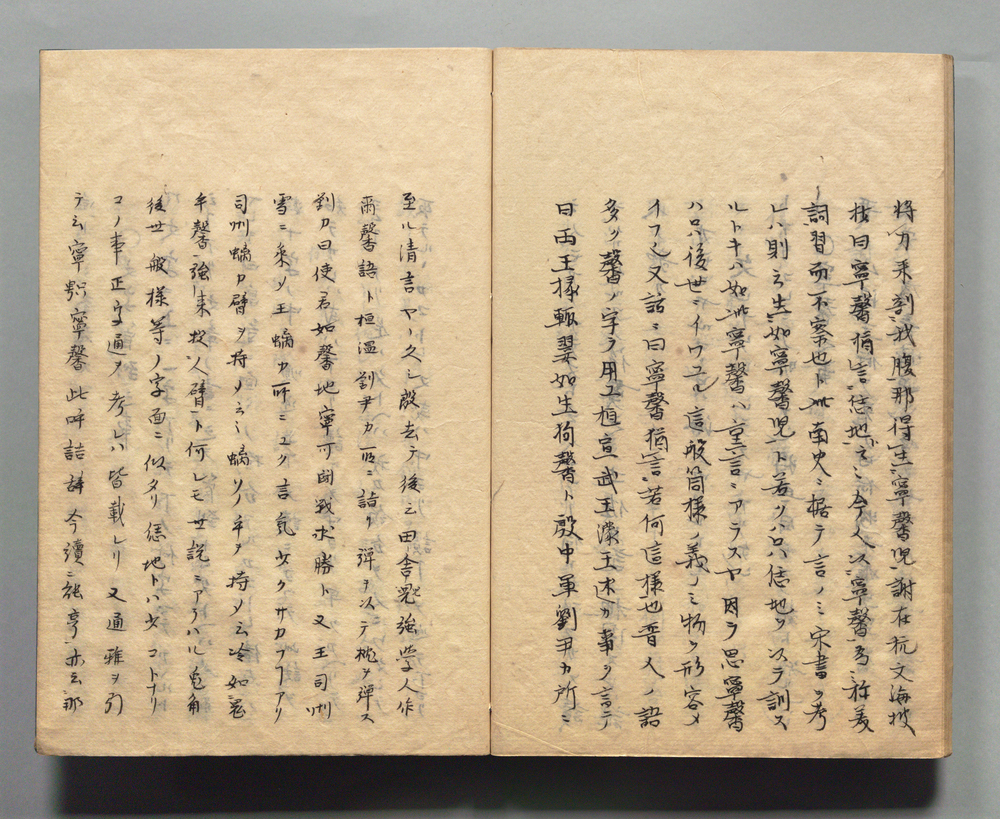 将刀来剖我腹那得生寧馨児謝在杭文海披
抄曰寧馨猶言恁地ドミ今人以寧馨為称美
詞習而不察也ト此南史ニ拠テ言ノミ宋書ヲ考
レハ則云生如寧馨児ト若クハ只恁地ヲ以テ訓ス
ルトキハ如此寧馨ハ重言ニアラスヤ因テ思寧馨
ハ只後世ニイワユル這般箇様ノ義ノミ物ヲ形容メ
イフ又話ニ曰寧馨猶言若何這様也晋人ノ語
多ク馨ノ字ヲ用ユ桓宣武王濛王述カ事ヲ言テ
曰両王様輒翣如生狗馨ト殷中軍劉尹カ所ニ
至ル清言ヤヽ久シ殷去テ後云田舎児強学人作
爾馨語ト桓温劉尹カ所ニ詣リ弾ヲ以テ枕ヲ弾ス
劉カ曰使君如馨地寧可闘戦求勝ト又王司州
雪ニ乗ソ王螭カ所ニユク言気少クサカフアリ
司州螭カ臂ヲ持ノ云ミ螭ソノ手ヲ持メ云冷如鬼
手馨強来捉人臂ト何レモ世説ニアラハル兎角
後世一般様等ノ字面ニ似タリ恁地トハ少コトナリ
コノ事正字通ノ考レハ皆載レリ 又通雅ヲ引
テ云寧馨寧馨此呼詰辞今讀ニ能亨亦云那